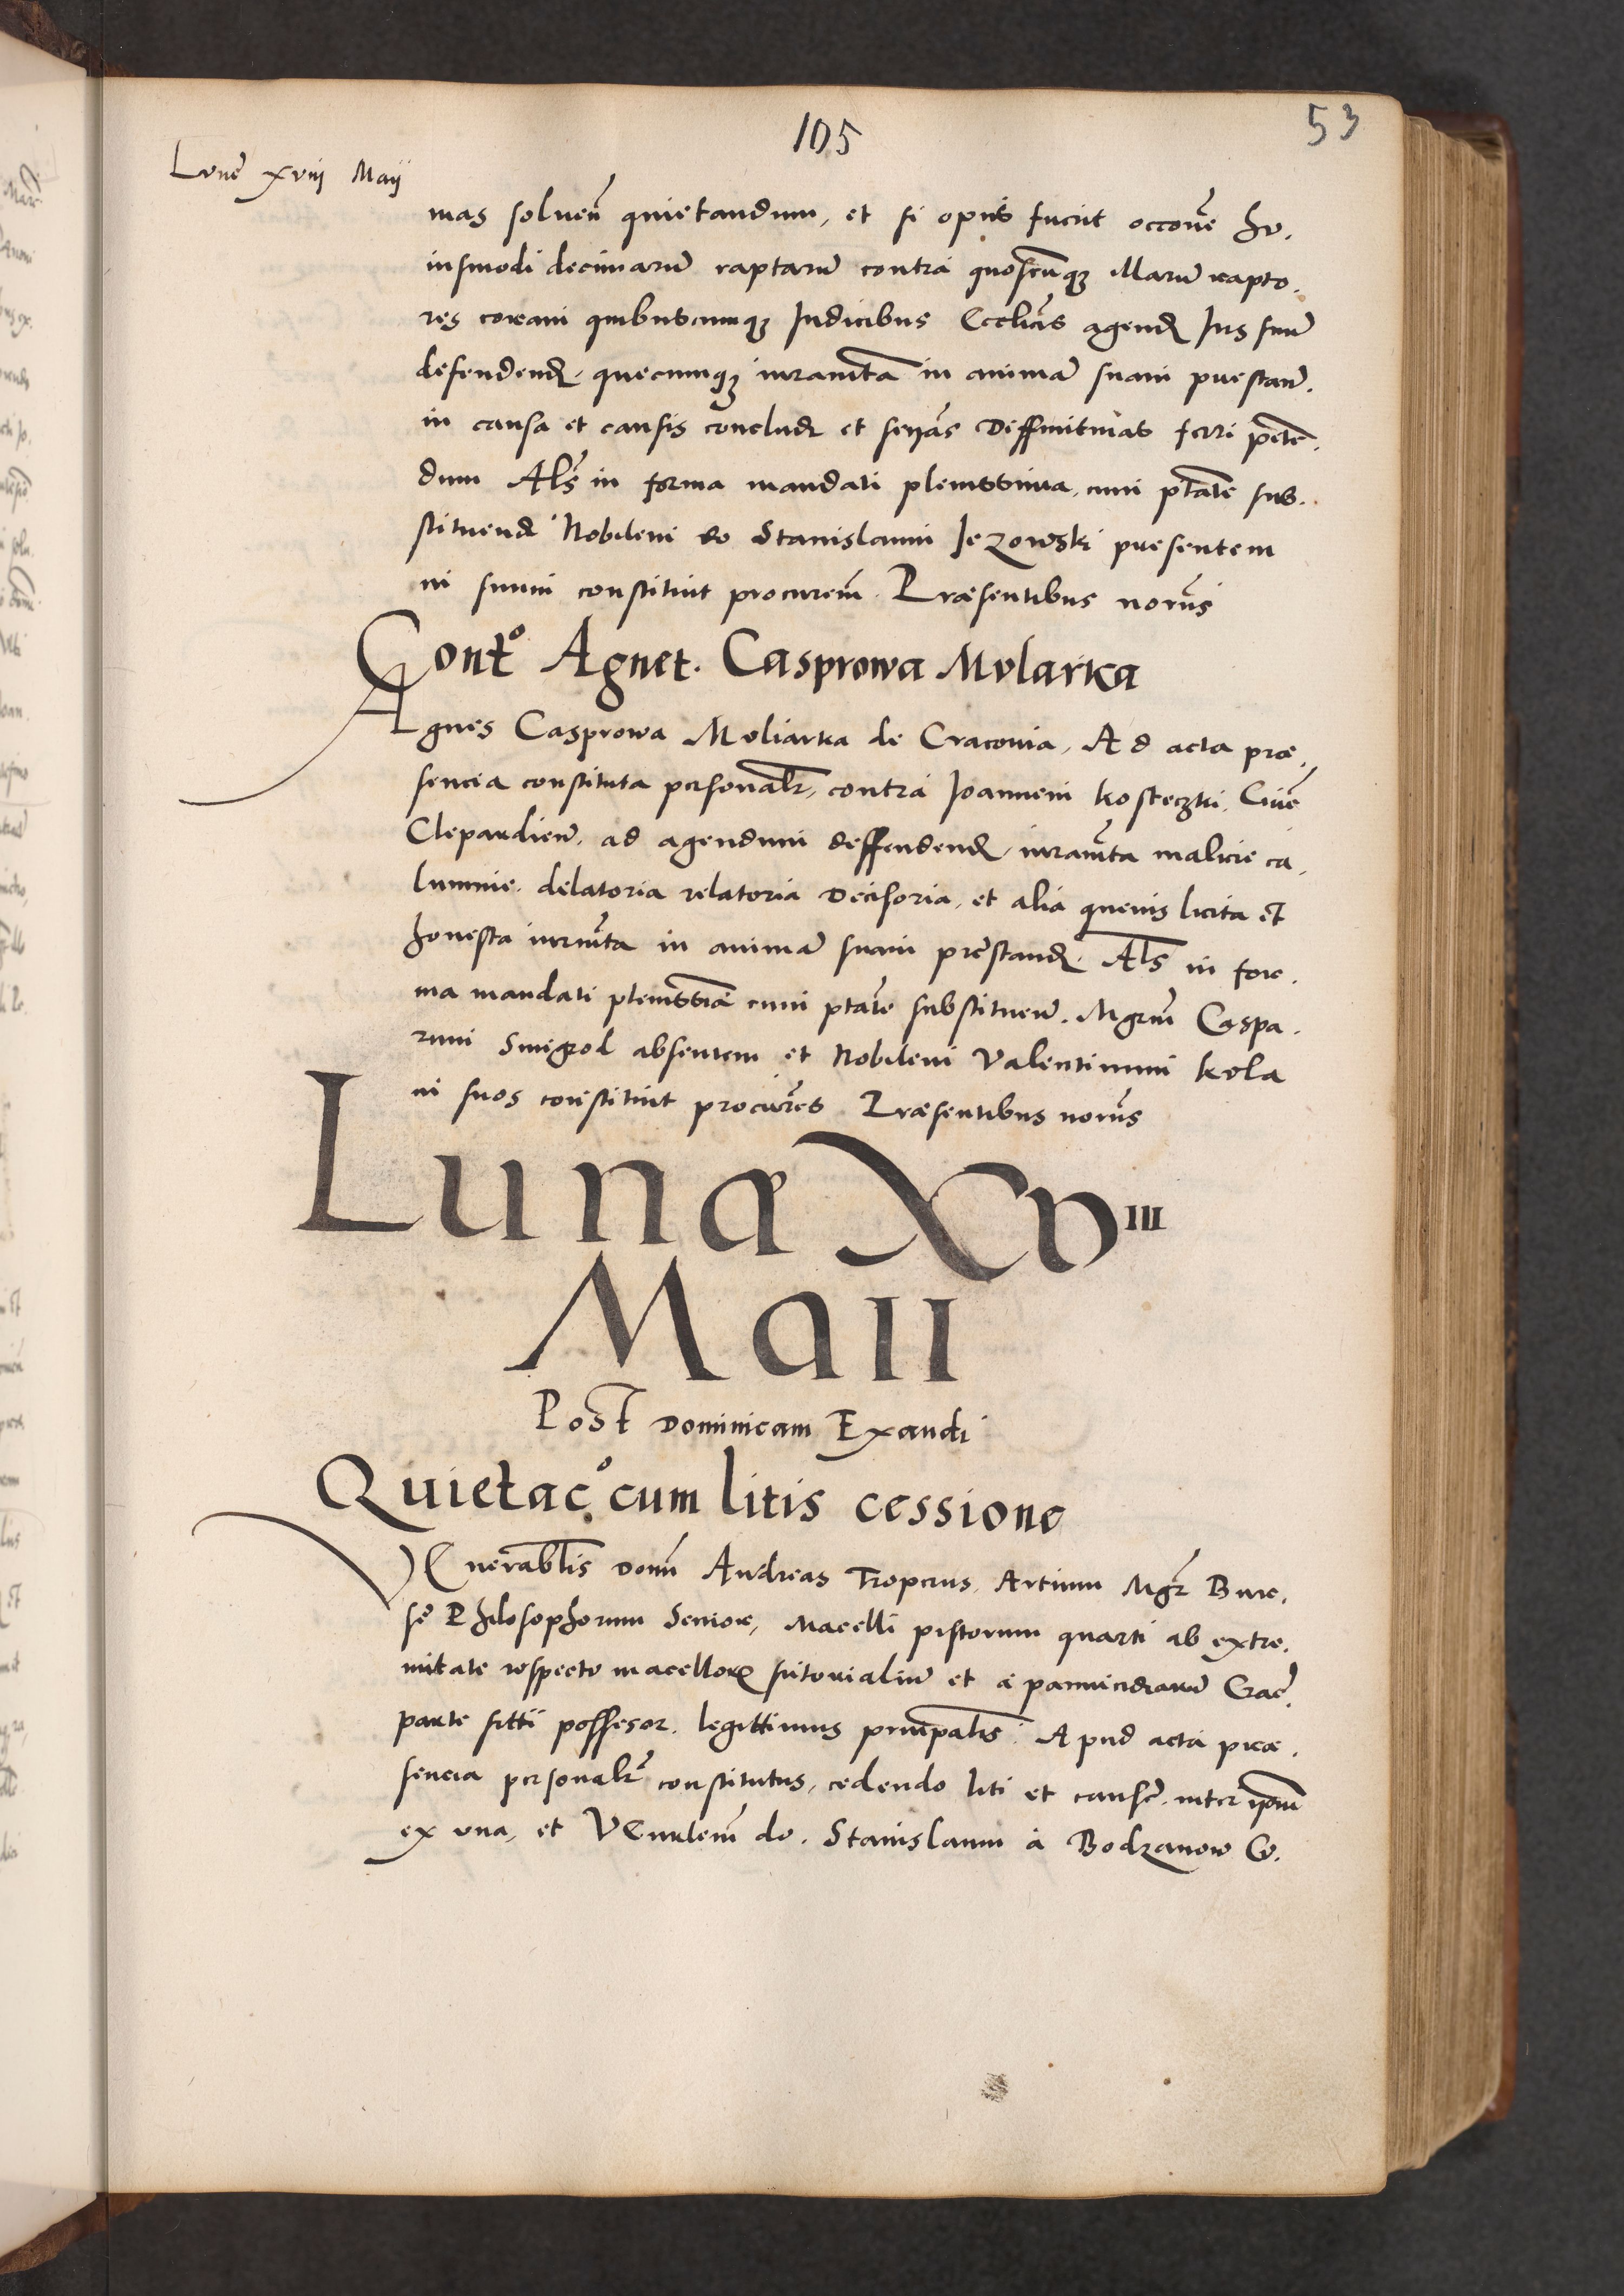 105
53
Lune xviij Maij
mas soluen̄ quietandum, et si opus fuerit occoñe hu,
iusmodi decimarū raptarū contra quoscūq3 illarū rapto,
res coram quibuscumq3 Judicibus Eccliās agend Jus suū
defendend, quecumq3 iuramta in animā suam prestan̄,
in causa et causis conclud et senias Deffinitiuas ferri peten̄,
dum Als in forma mandati plenissima, cum ptāte sub,
stituend Nobilem do Stanislaum Jezowski presentem
in suum constituit procurem̄. Præsentibus norīs
Constō Agnet. Casprowa Mvlarka
Agnes Casprowa Mvliarka de Cracouia, Ad acta præ,
sencia constituta personalr, contra Joannem Kosteczki, Ciuē
Clepardien̄, ad agendum deffendend, iuramta malicie ca,
lumnie, delatoria relatoria Decisoria, et alia queuis licita et
honesta iurmta in animā suam prestand, Als in for,
ma mandati plenissiā cum ptāte substituen̄. Mgrum Caspa,
rum Smigrod absentem et Nobilem Valentinum Kula
in suos constituit procures Præsentibus norīs
Lunæ XVIII
Maii
Post Dominicam Exaudi
Quietac̄o cum litis cessione
VEnerablis Domn̄ Andreas Troperus, Artium Mgr Bur,
sē Philosophorum Senior, Macelli pistorum quarti ab extre,
mitate respectu macellor sutorialiū et a pannicidiarū Crac̄,
parte sitti possesor, legittimus principalis. Apud acta præ,
sencia personalr constitutus, cedendo liti et causē, inter ipm̄
ex vna, et VEnrlem̄ do. Stanislaum à Bodzanow C.